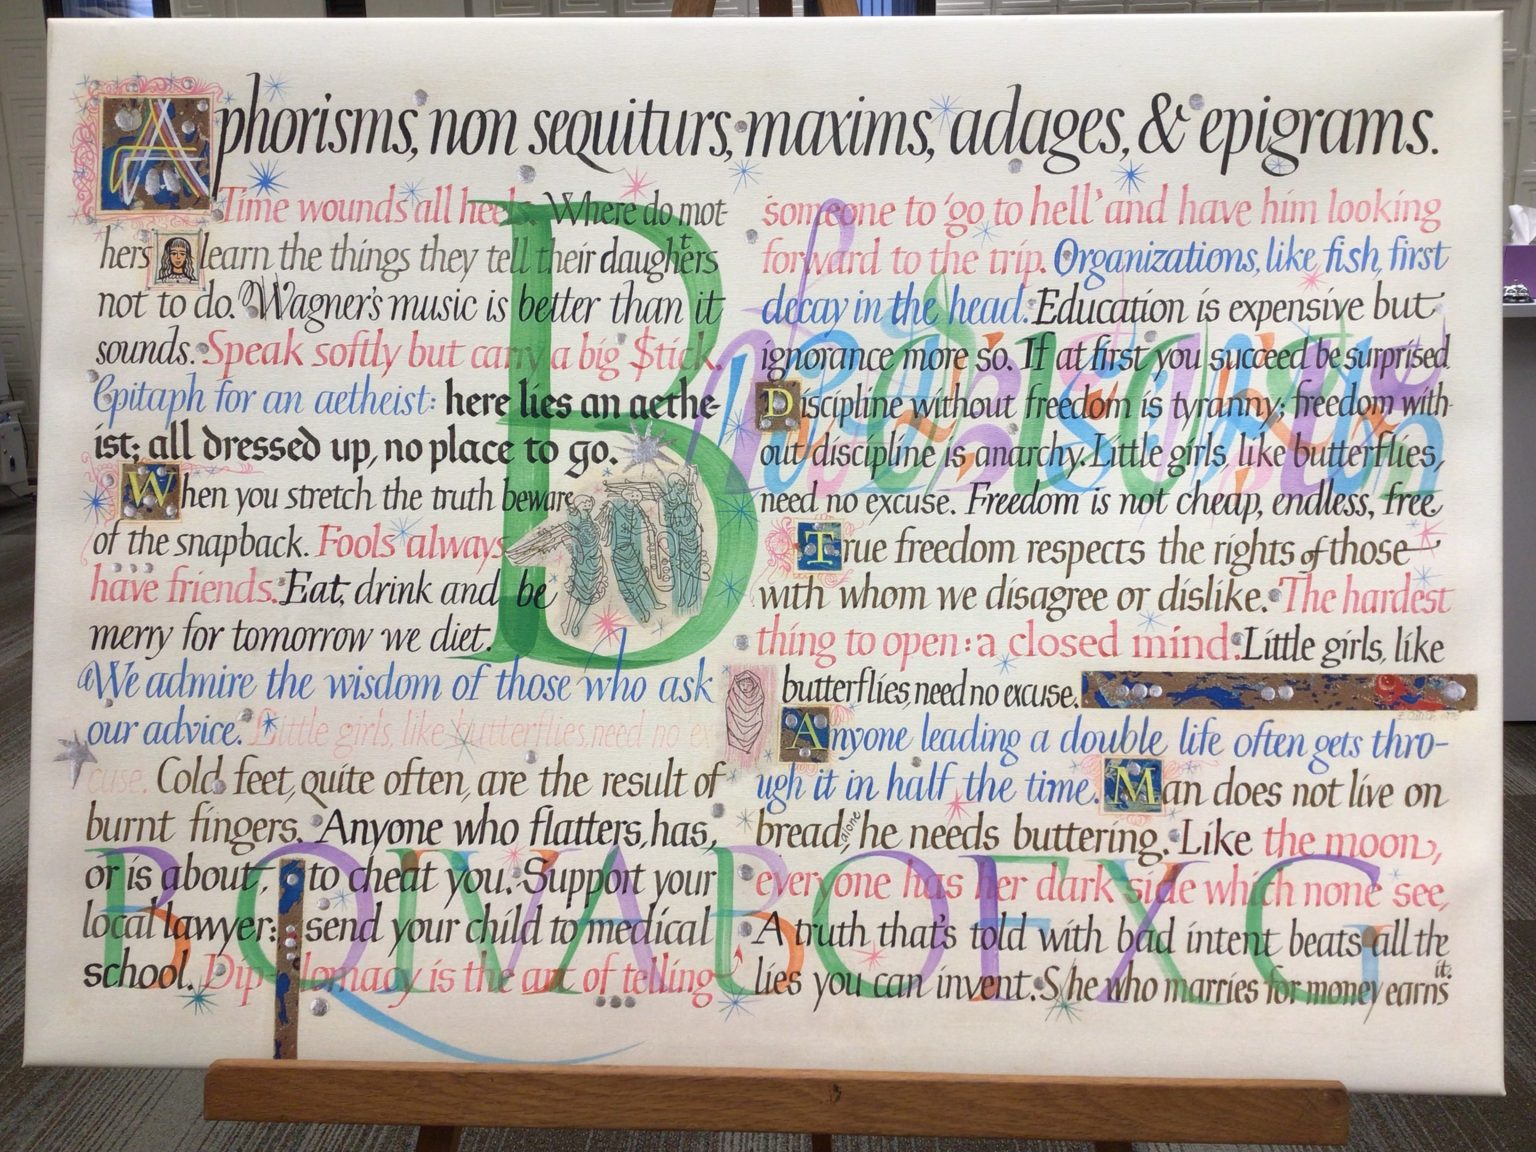 Aphorisms, non sequiturs, maxims, adages, & epigrams.
Time wounds all heels. Where do mot-
hers learn the things they tell their daughters
not to do. Wagner's music is better than it
sounds. Speak softly but carry a big $tick.
Epitaph for an aetheist: here lies an aethe-
ist; all dressed up, no place to go.
When you stretch the truth beware
of the snapback. Fools always
have friends. Eat, drink and be
merry for tomorrow we diet.
We admire the wisdom of those who ask
our advice. Little girls, like butterflies, need no ex-
cuse. Cold feet, quite often, are the result of
burnt fingers. Anyone who flatters, has,
or is about, to cheat you. Support your
local lawyer: send your child to medical
school. Dip-lomacy is the art of telling
someone to 'go to hell' and have him looking
forward to the trip. Organizations, like fish, first
decay in the head. Education is expensive but
ignorance more so. If at first you succeed be surprised
Discipline without freedom is tyranny; freedom with-
out discipline is anarchy. Little girls, like butterflies,
need no excuse. Freedom is not cheap, endless, free.
True freedom respects the rights of those
with whom we disagree or dislike. The hardest
thing to open: a closed mind. Little girls, like
butterflies, need no excuse.
Anyone leading a double life often gets thro-
ugh it in half the time. Man does not live on
bread alone, he needs buttering. Like the moon,
everyone has her dark side which none see,
A truth that's told with bad intent beats all the
lies you can invent. S/he who marries for money earns it.
B
BQIVABOFXG